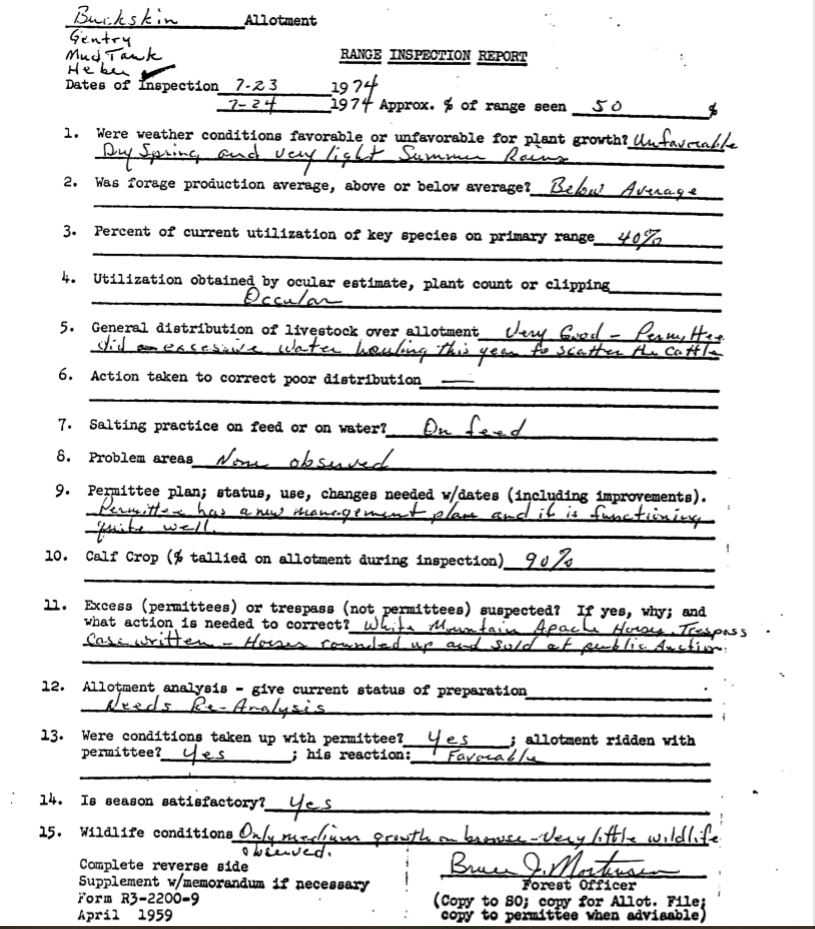 Buckskin Allotment
Gentry
Mud Tank
Heber ✓
RANGE INSPECTION REPORT
Dates of Inspection 7-23 1974
7-24 1974 Approx. % of range seen 50 %
1. Were weather conditions favorable or unfavorable for plant growth? Unfavorable
Dry Spring and very light Summer Rains
2. Was forage production average, above or below average? Below Average
3. Percent of current utilization of key species on primary range 40%
4. Utilization obtained by ocular estimate, plant count or clipping
Occular
5. General distribution of livestock over allotment Very Good - Permittee
did an excessive water hauling this year to scatter the cattle
6. Action taken to correct poor distribution —
7. Salting practice on feed or on water? On feed
8. Problem areas None observed
9. Permittee plan; status, use, changes needed w/dates (including improvements).
Permittee has a new management plan and it is functioning
quite well.
10. Calf Crop (% tallied on allotment during inspection) 90%
11. Excess (permittees) or trespass (not permittees) suspected? If yes, why; and
what action is needed to correct? White Mountain Apache Horses. Trespass
Case written - Horses rounded up and sold at public Auction.
12. Allotment analysis - give current status of preparation
Needs Re-Analysis
13. Were conditions taken up with permittee? Yes ; allotment ridden with
permittee? Yes ; his reaction: Favorable
14. Is season satisfactory? Yes
15. Wildlife conditions Only medium growth on browse - Very little wildlife
observed.
Complete reverse side
Supplement w/memorandum if necessary
Form R3-2200-9
April 1959
Bruce J. Mortensen
Forest Officer
(Copy to SO; copy for Allot. File;
copy to permittee when advisable)